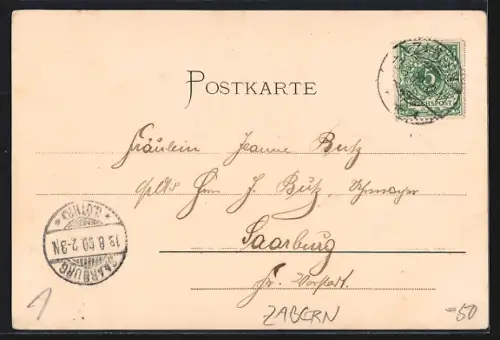 POSTKARTE
5
REICHSPOST
ZABERN
Fräulein Jeanne Butz
Herrn J. Butz,
Saarburg
Fr. Vorstadt.
SAARBURG
13 8 99 2-3N
* (LOTHR) *
1
ZABERN
-50